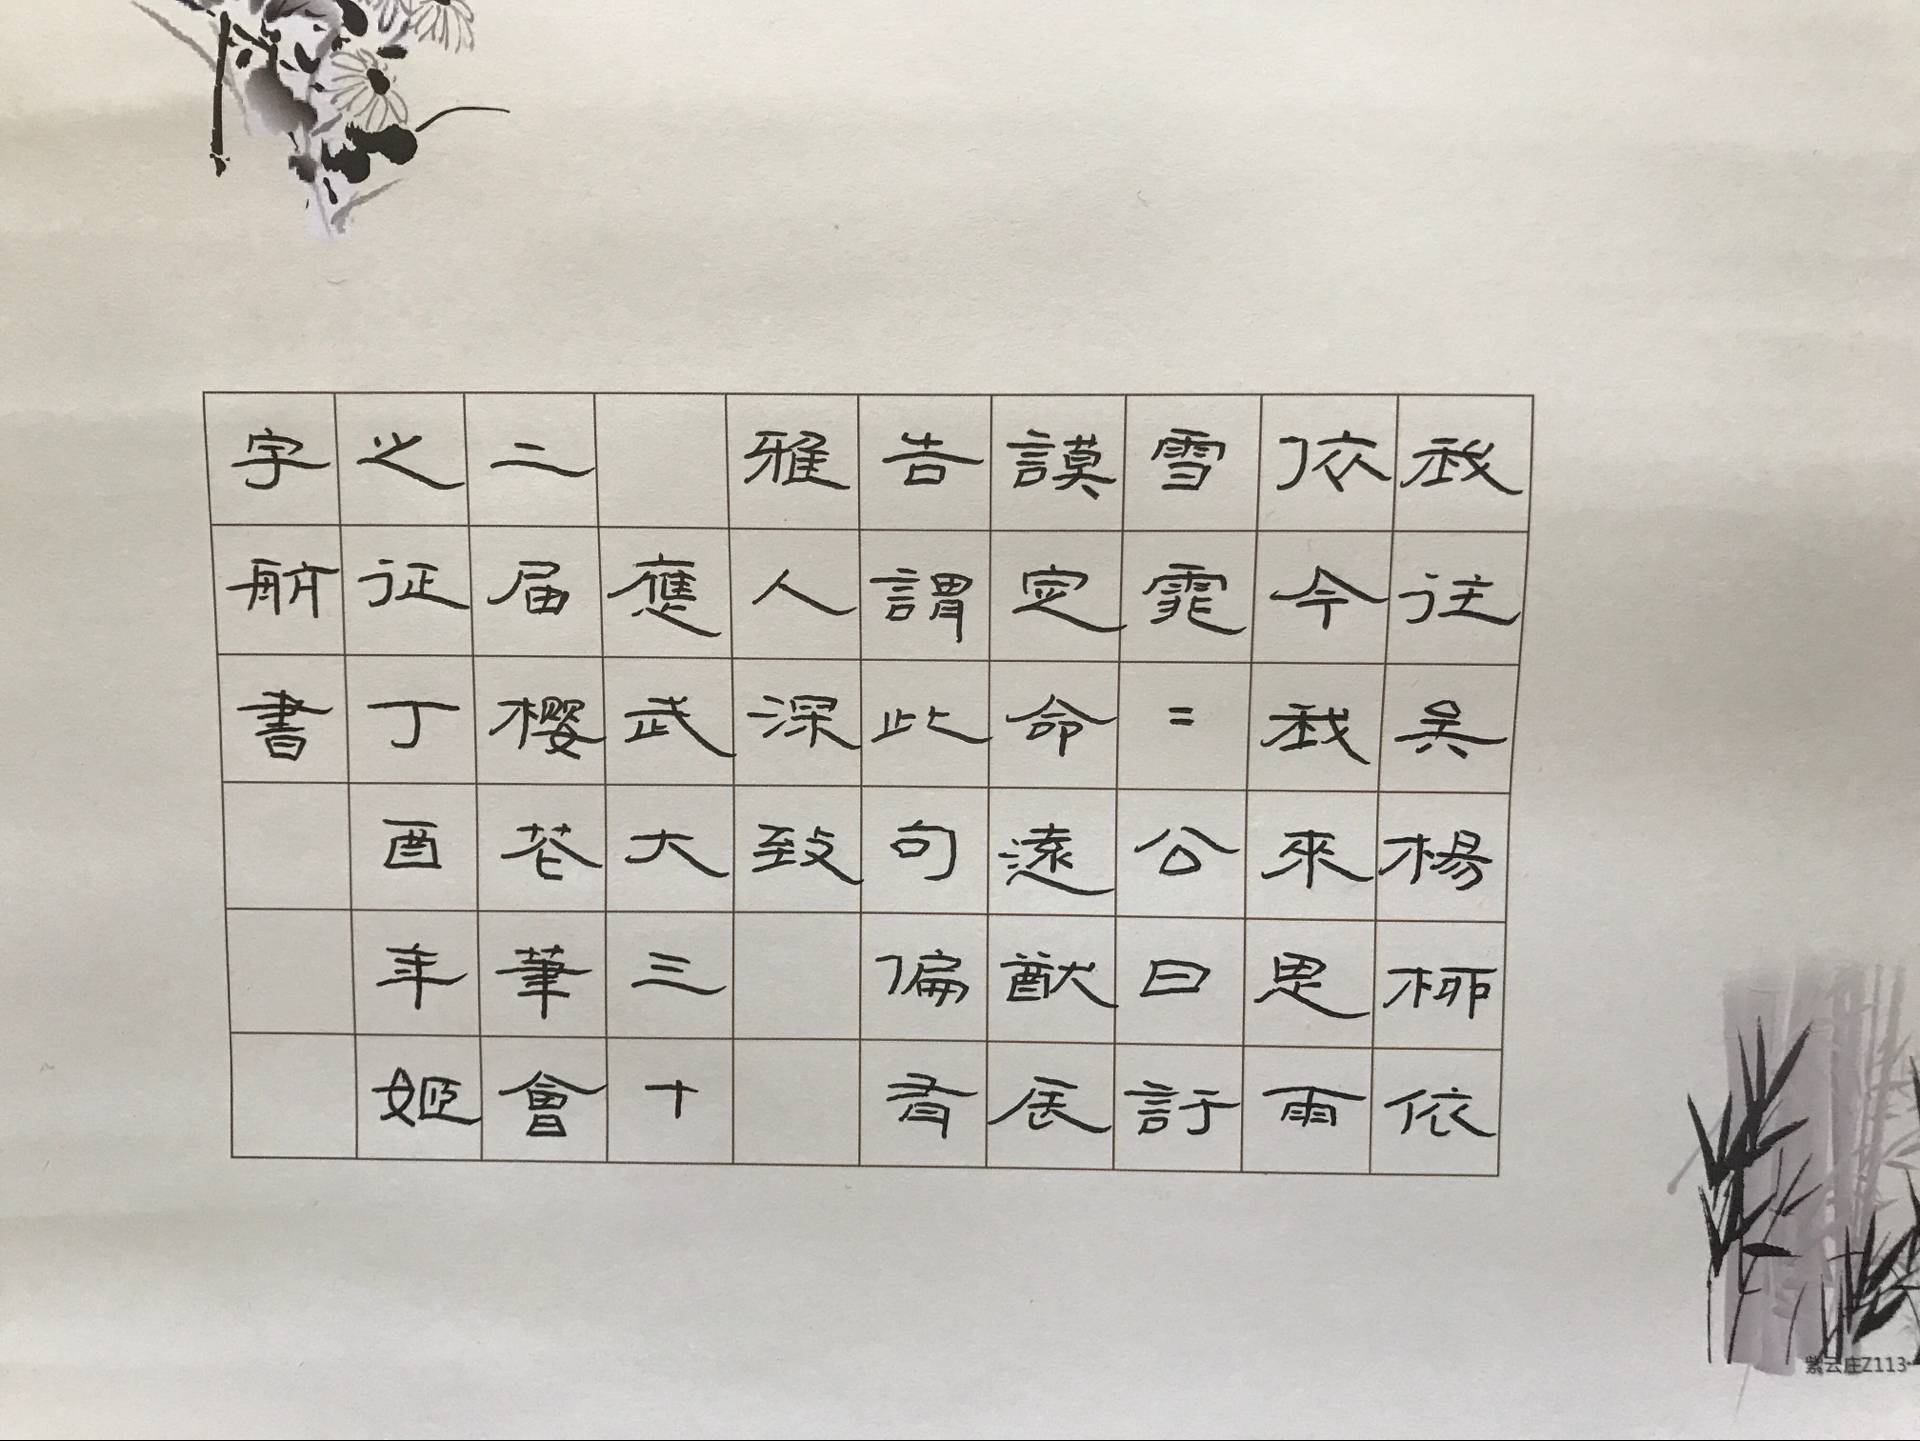 我往矣楊柳依
依今我來思雨
雪霏=公曰訏
謨定命遠猷辰
告謂此句偏有
雅人深致
應武大三十
二届櫻花筆會
之征丁酉年姬
字航書
紫云庄Z113